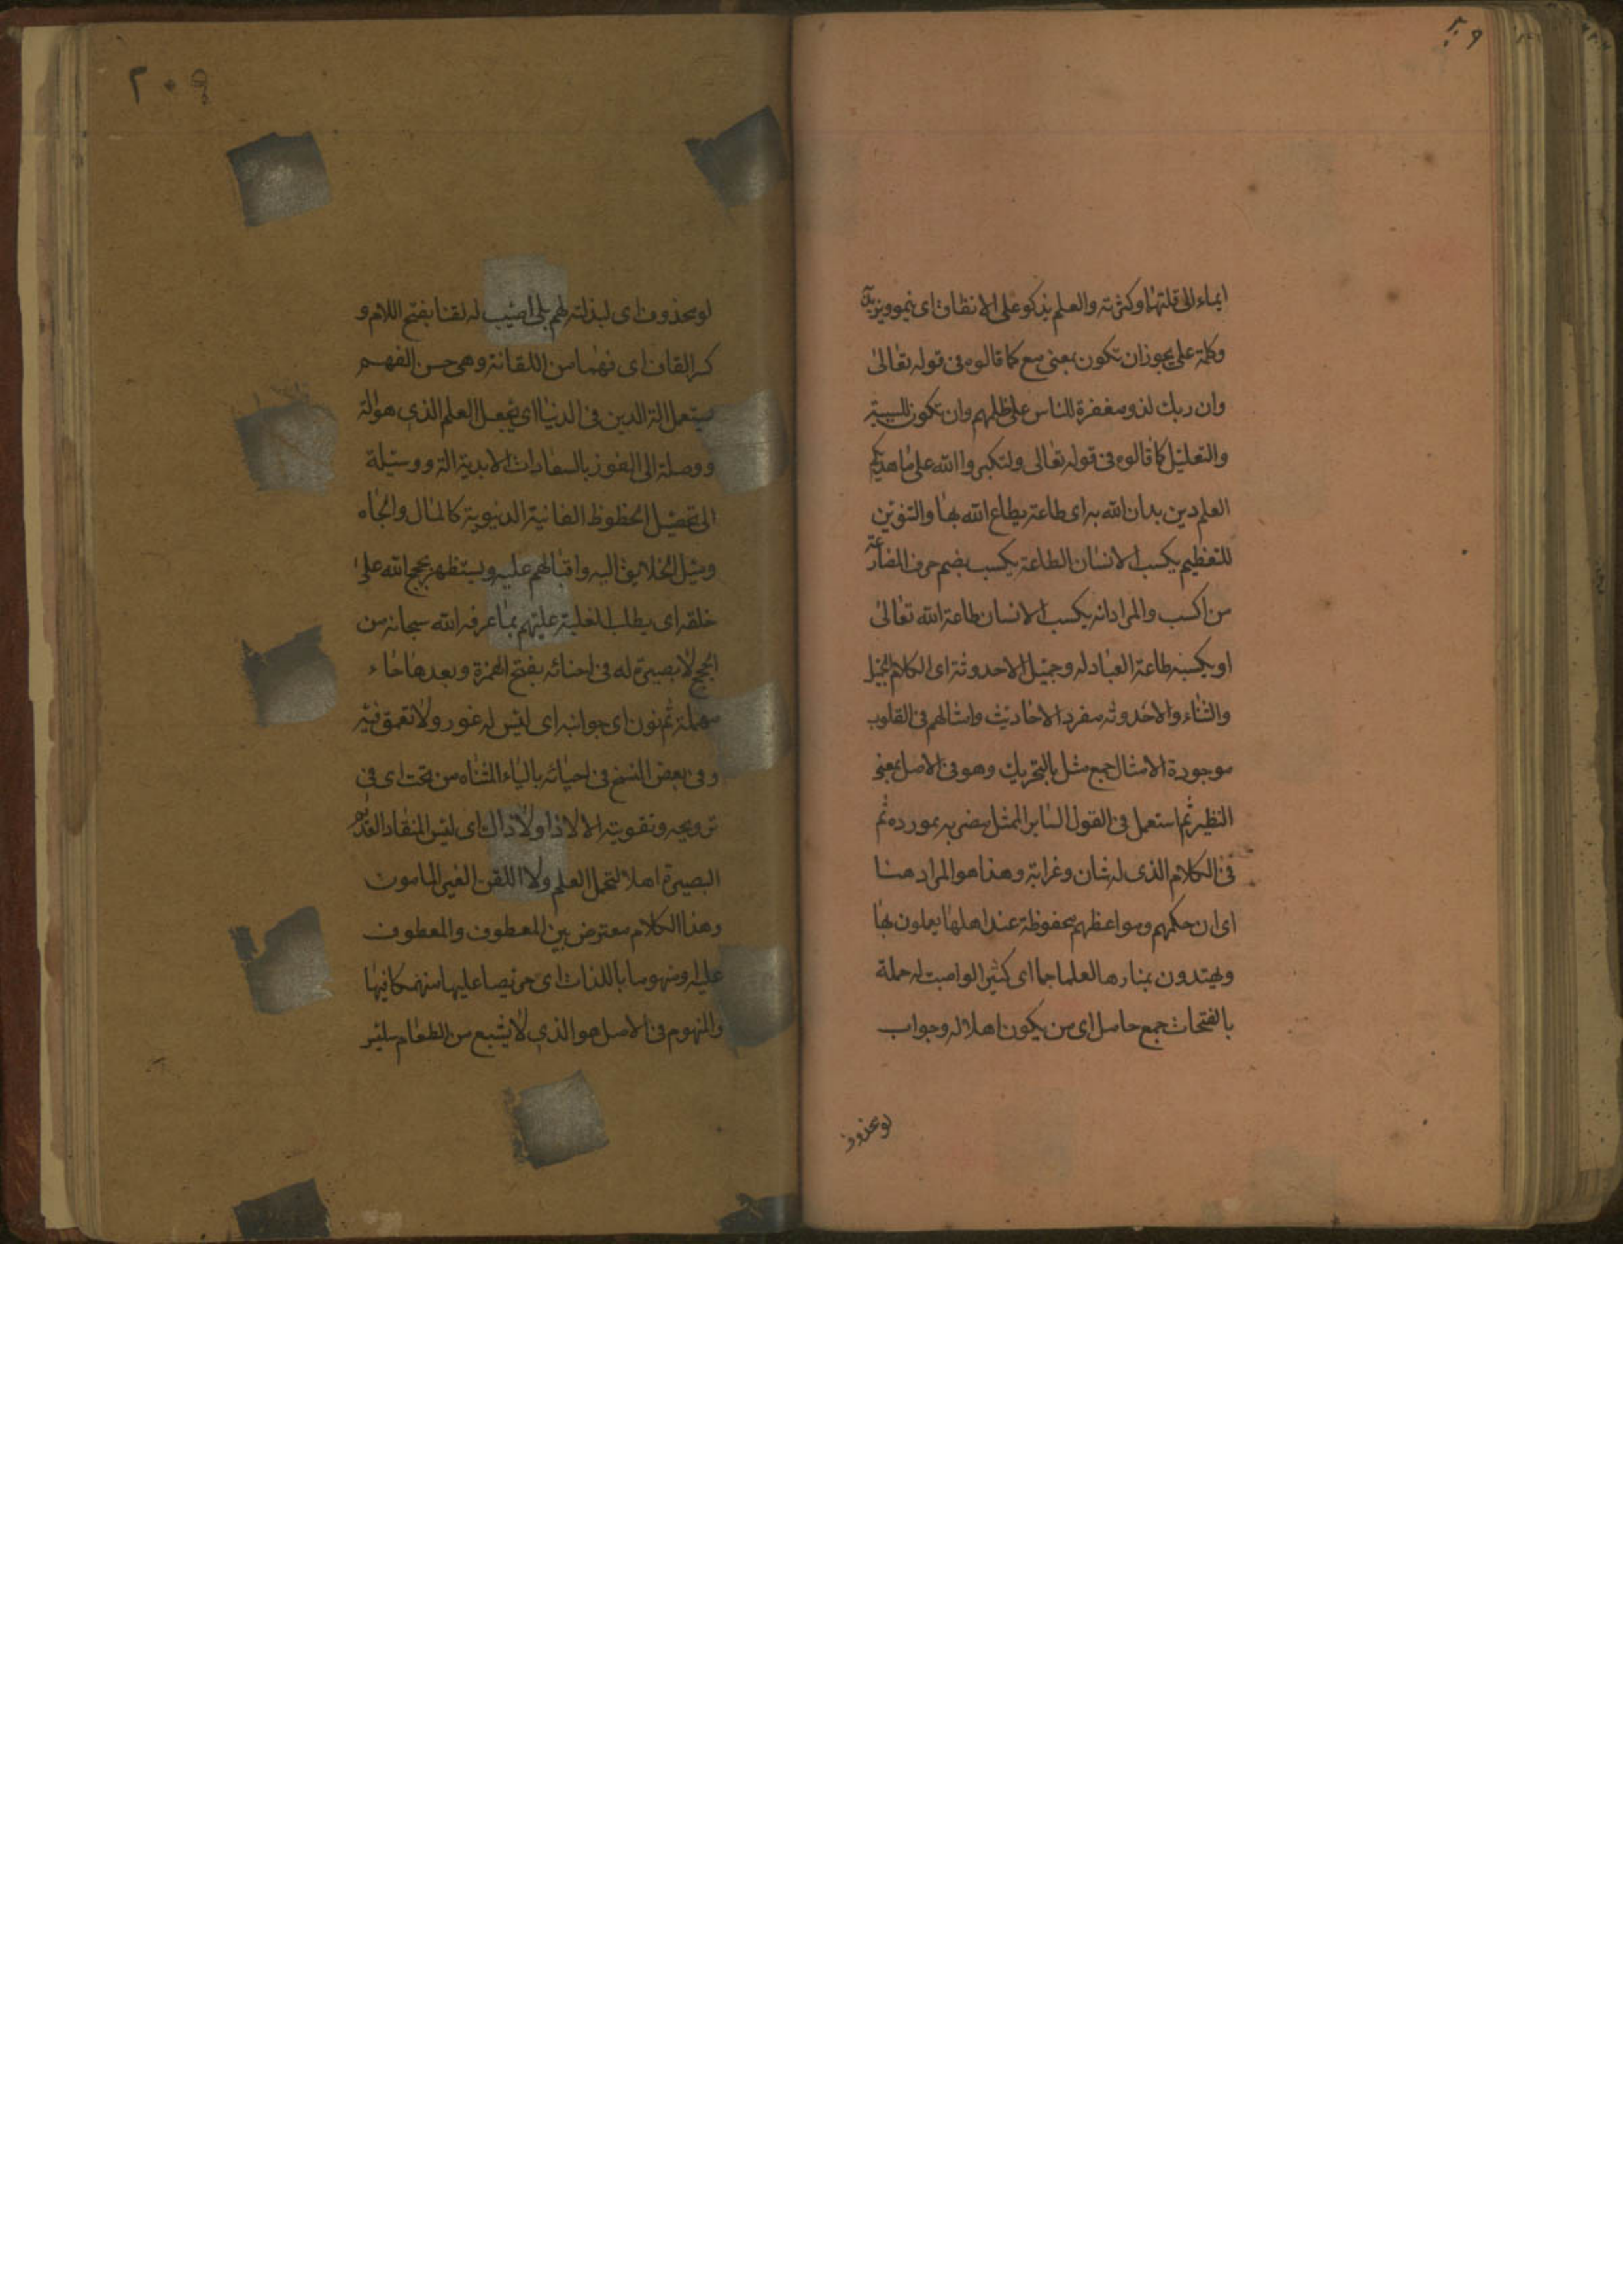 ايماء الى قلتها وكثرته والعلم يذكو على الانفاق اى ينمو ويزيد
وكلمة على يجوز ان تكون بمعنى مع كما قالوه فى قوله تعالى
وان ربك لذو مغفرة للناس على ظلمهم وان تكون للسببية
والتعليل كما قالوه فى قوله تعالى ولتكبروا الله على ما هديكم
العلم دين يدان الله به اى طاعة يطاع الله بها والتنوين
للتعظيم يكسب الانسان الطاعة يكسب بضم حرف المضارعة
من اكسب والمراد انه يكسب الانسان طاعة الله تعالى
او يكسبه طاعة العباد له وجميل الاحدوثة اى الكلام الجميل
والثناء والاحدوثه مفرد الاحاديث وامثالهم فى القلوب
موجودة الامثال جمع مثل بالتحريك وهو فى الاصل بمعنى
النظير ثم استعمل فى القول الساير الممثل مضربه بمورده ثم
فى الكلام الذى له شان وغرابة وهذا هو المراد هنا
اى ان حكمهم ومواعظهم محفوظة عند اهلها يعملون بها
ويهتدون بمنارها لعلما جما اى كثيرا لو اصبت له حملة
بالفتحات جمع حامل اى من يكون اهلا له وجواب
لو محذوف
٢٠٩
لو محذوف اى لبذلته لهم بلى اصيب له لقنا بفتح اللام و
كسر القاف اى فهما من اللقانة وهى حسن الفهم
يستعمل الة الدين فى الدنيا اى يجعل العلم الذى هو الة
ووصلة الى الفوز بالسعادات الابدية الة ووسيلة
الى تحصيل الحظوظ الفانية الدنيوية كالمال والجاه
وميل الخلايق اليه واقبالهم عليه ويستظهر بحجج الله على
خلقه اى يطلب الغلبة عليهم بما عرفه الله سبحانه من
الحجج لا بصيرة له فى احنائه بفتح الهمزة وبعدها حاء
مهملة ثم نون اى جوانبه اى ليس له غور ولا تعمق فيه
وفى بعض النسخ فى احيائه بالياء المثناه من تحت اى فى
ترويجه وتقويته الا لا ذا ولا ذاك اى ليس المنقاد العديم
البصيرة اهلا لتحمل العلم ولا اللقن الغير المامون
وهذا الكلام معترض بين المعطوف والمعطوف
عليه او منهوما باللذات اى حريصا عليها منهمكا فيها
والمنهوم فى الاصل هو الذى لا يشبع من الطعام سلس